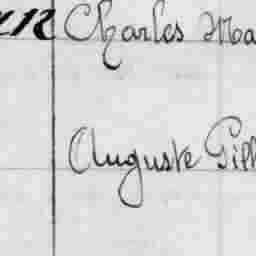 Charles Ma
Auguste Gill